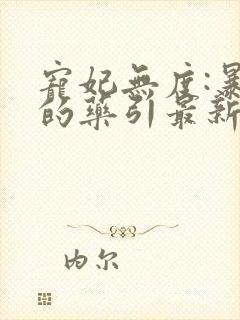 寵妃無度:暴
的藥引最新
内尔